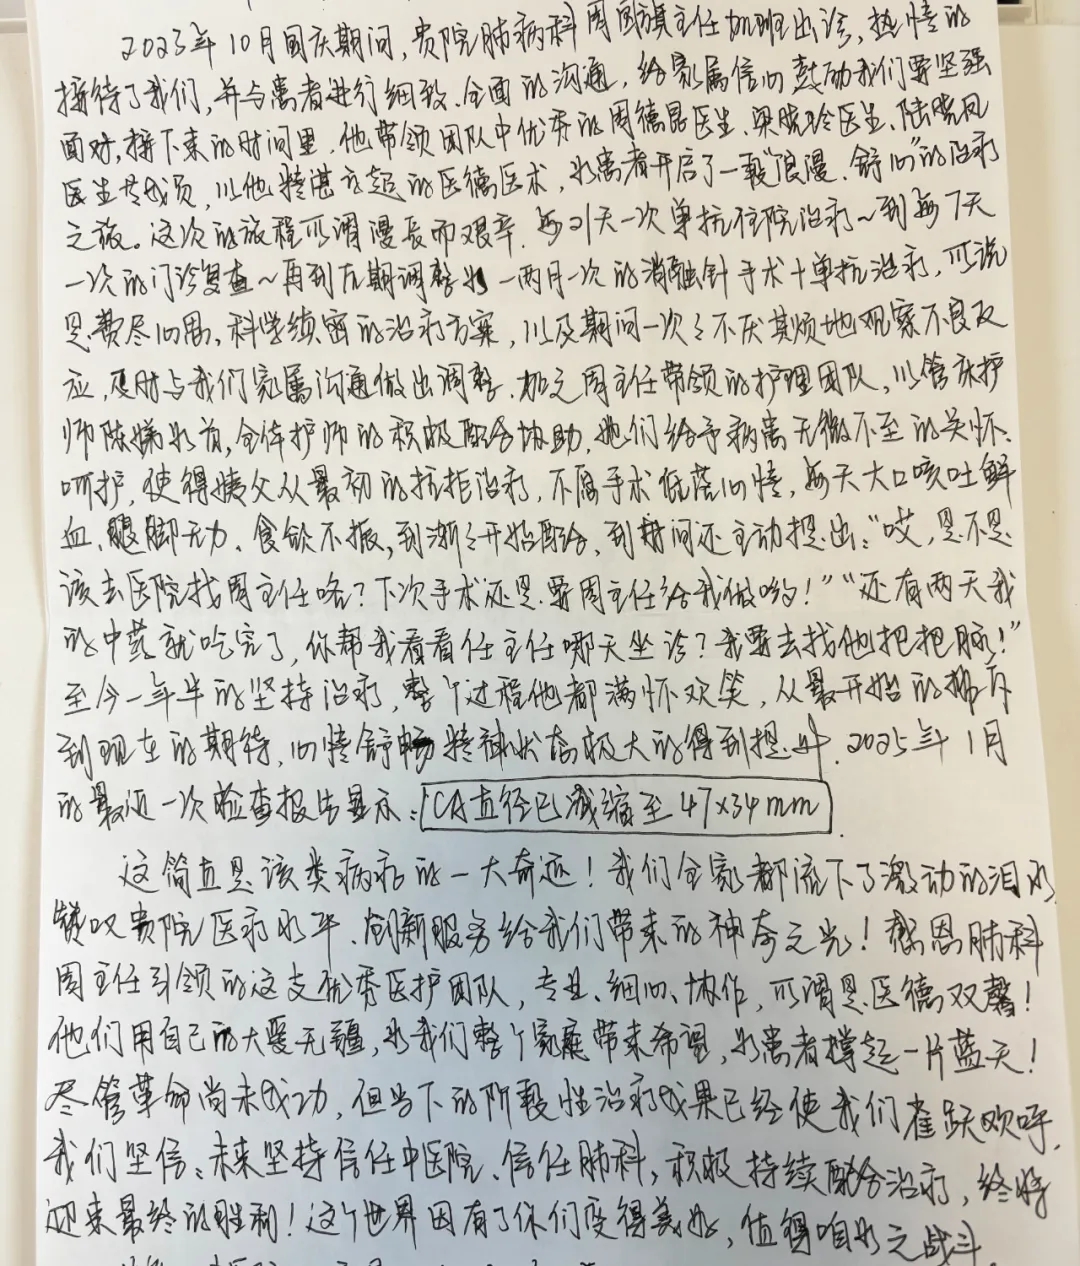 2023年10月国庆期间,贵院肺病科周国旗主任加班出诊,热情的
接待了我们,并与患者进行细致、全面的沟通,给家属信心鼓励我们要坚强
面对,接下来的时间里,他带领团队中优秀的周德昆医生、梁晓玲医生、陆晓凤
医生等成员,以他精湛卓越的医德医术,为患者开启了一段“浪漫、舒心”的治疗
之旅。这次的旅程可谓漫长而艰辛,每21天一次单抗住院治疗~到每7天
一次的门诊复查~再到后期调整为一两月一次的消融针手术+单抗治疗,可说
是费尽心思,科学缜密的治疗方案,以及期间一次次不厌其烦地观察不良反
应,及时与我们家属沟通做出调整,加之周主任带领的护理团队,以管床护
师陈娣为首,全体护师的积极配合协助,她们给予病患无微不至的关怀、
呵护,使得姨父从最初的抗拒治疗,不愿手术低落心情,每天大口咳吐鲜
血、腿脚无力、食欲不振,到渐渐开始配合,到期间还主动提出:“哎,是不是
该去医院找周主任咯?下次手术还是要周主任给我做哟!”“还有两天我
的中药就吃完了,你帮我看看任主任哪天坐诊?我要去找他把把脉!”
至今一年半的坚持治疗,整个过程他都满怀欢笑,从最开始的排斥
到现在的期待,心情舒畅精神状态极大的得到提升,2025年1月
的最近一次检查报告显示:CA直径已减缩至47×34mm.
这简直是该类病症的一大奇迹!我们全家都流下了激动的泪水
赞叹贵院医疗水平、创新服务给我们带来的神奇之光!感恩肺科
周主任引领的这支优秀医护团队,专业、细心、协作,可谓是医德双馨!
他们用自己的大爱无疆,为我们整个家庭带来希望,为患者撑起一片蓝天!
尽管革命尚未成功,但当下的阶段性治疗成果已经使我们雀跃欢呼,
我们坚信:未来坚持信任中医院、信任肺科,积极持续配合治疗,终将
迎来最终的胜利!这个世界因有了你们变得美好,值得咱为之战斗